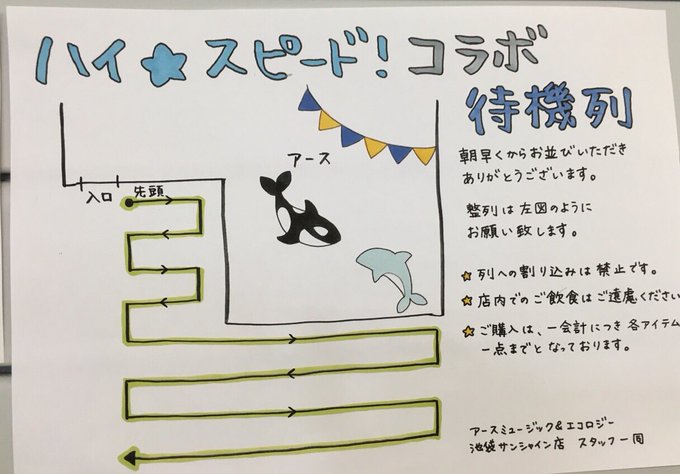 ハイ☆スピード!コラボ
待機列
朝早くからお並びいただき
ありがとうございます。
整列は左図のように
お願い致します。
★列への割り込みは禁止です。
★店内でのご飲食はご遠慮ください
★ご購入は、一会計につき各アイテム
一点までとなっております。
アース
入口
先頭
アースミュージック&エコロジー
池袋サンシャイン店 スタッフ一同